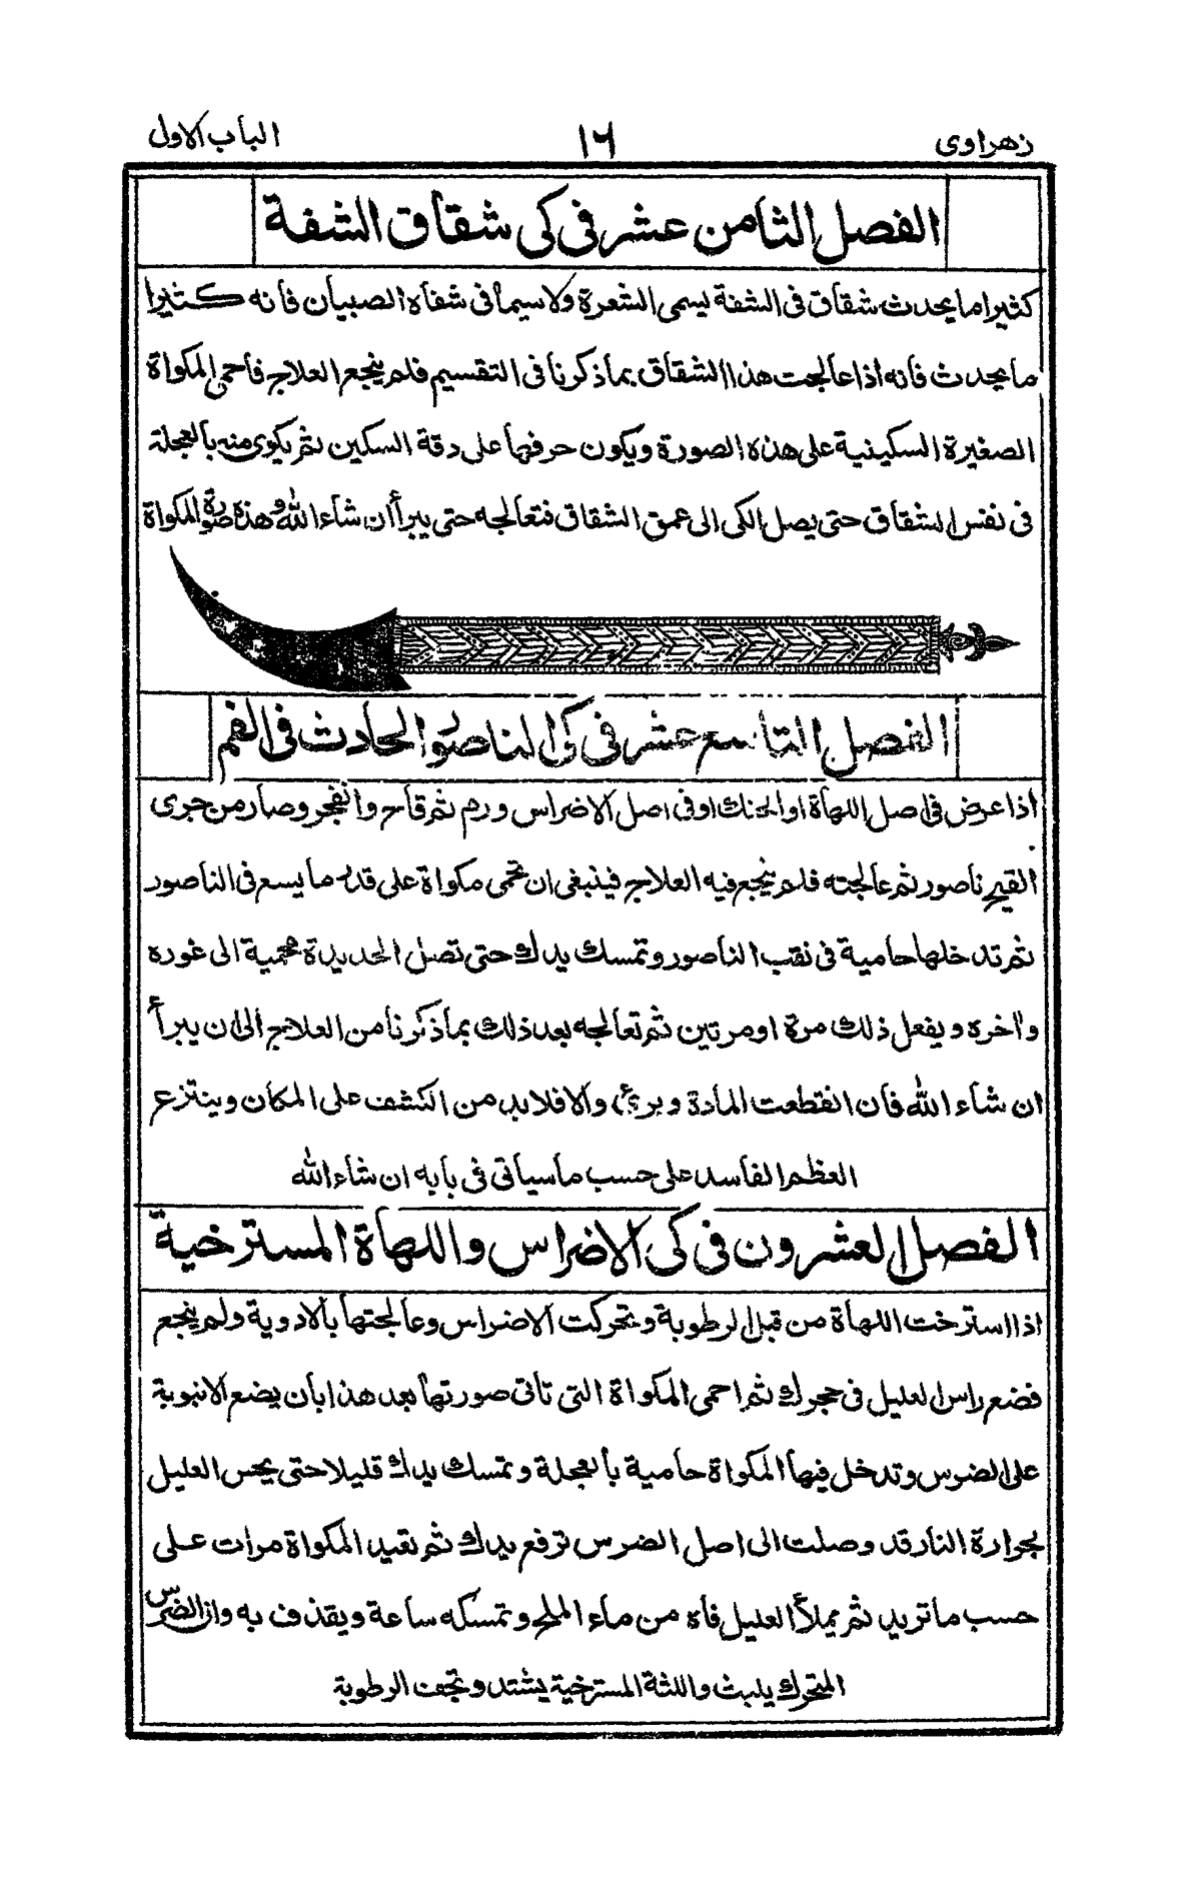 زهراوى
١٦
الباب الاول
الفصل الثامن عشر فى كى شقاق الشفة
كثيرا ما يحدث شقاق فى الشفة يسمى الشعرة ولا سيما فى شفاه الصبيان فانه كثيرا
ما يحدث فانه اذا عالجت هذا الشقاق بما ذكرنا فى التقسيم فلم ينجع العلاج فاحمى المكواة
الصغيرة السكينية على هذه الصورة ويكون حرفها على دقة السكين ثم يكوى منه بالعجلة
فى نفس الشقاق حتى يصل الكى الى عمق الشقاق فتعالجه حتى يبرأ ان شاء الله وهذه صورة المكواة
الفصل التاسع عشر فى كى الناصور الحادث فى الفم
اذا عرض فى اصل اللهاة او الحنك او فى اصل الاضراس ورم ثم قاح وانفجر وصار من جرى
القيح ناصور ثم عالجته فلم ينجع فيه العلاج فينبغى ان تحمى مكواة على قدر ما يسع فى الناصور
ثم تدخلها حامية فى نقب الناصور وتمسك يدك حتى تصل الحديدة محمية الى غوره
واٰخره ويفعل ذلك مرة او مرتين ثم تعالجه بعد ذلك بما ذكرنا من العلاج الى ان يبرأ
ان شاء الله فان انقطعت المادة وبرئ والا فلا بد من الكشف على المكان وينتزع
العظم الفاسد على حسب ما سياتى فى بابه ان شاء الله
الفصل العشرون فى كى الاضراس واللهاة المسترخية
اذا استرخت اللهاة من قبل الرطوبة وتحركت الاضراس وعالجتها بالادوية ولم ينجع
فضع راس العليل فى حجرك ثم احمى المكواة التى تاتى صورتها بعد هذا بان يضع الانبوبة
على الضرس وتدخل فيها المكواة حامية بالعجلة وتمسك يدك قليلا حتى يحس العليل
بحرارة النار قد وصلت الى اصل الضرس ترفع يدك ثم تعيد المكواة مرات على
حسب ما تريد ثم يملأ العليل فاه من ماء الملح وتمسكه ساعة ويقذف به وان الضرس
المتحرك يلبث واللثة المسترخية يشتد وتجف الرطوبة